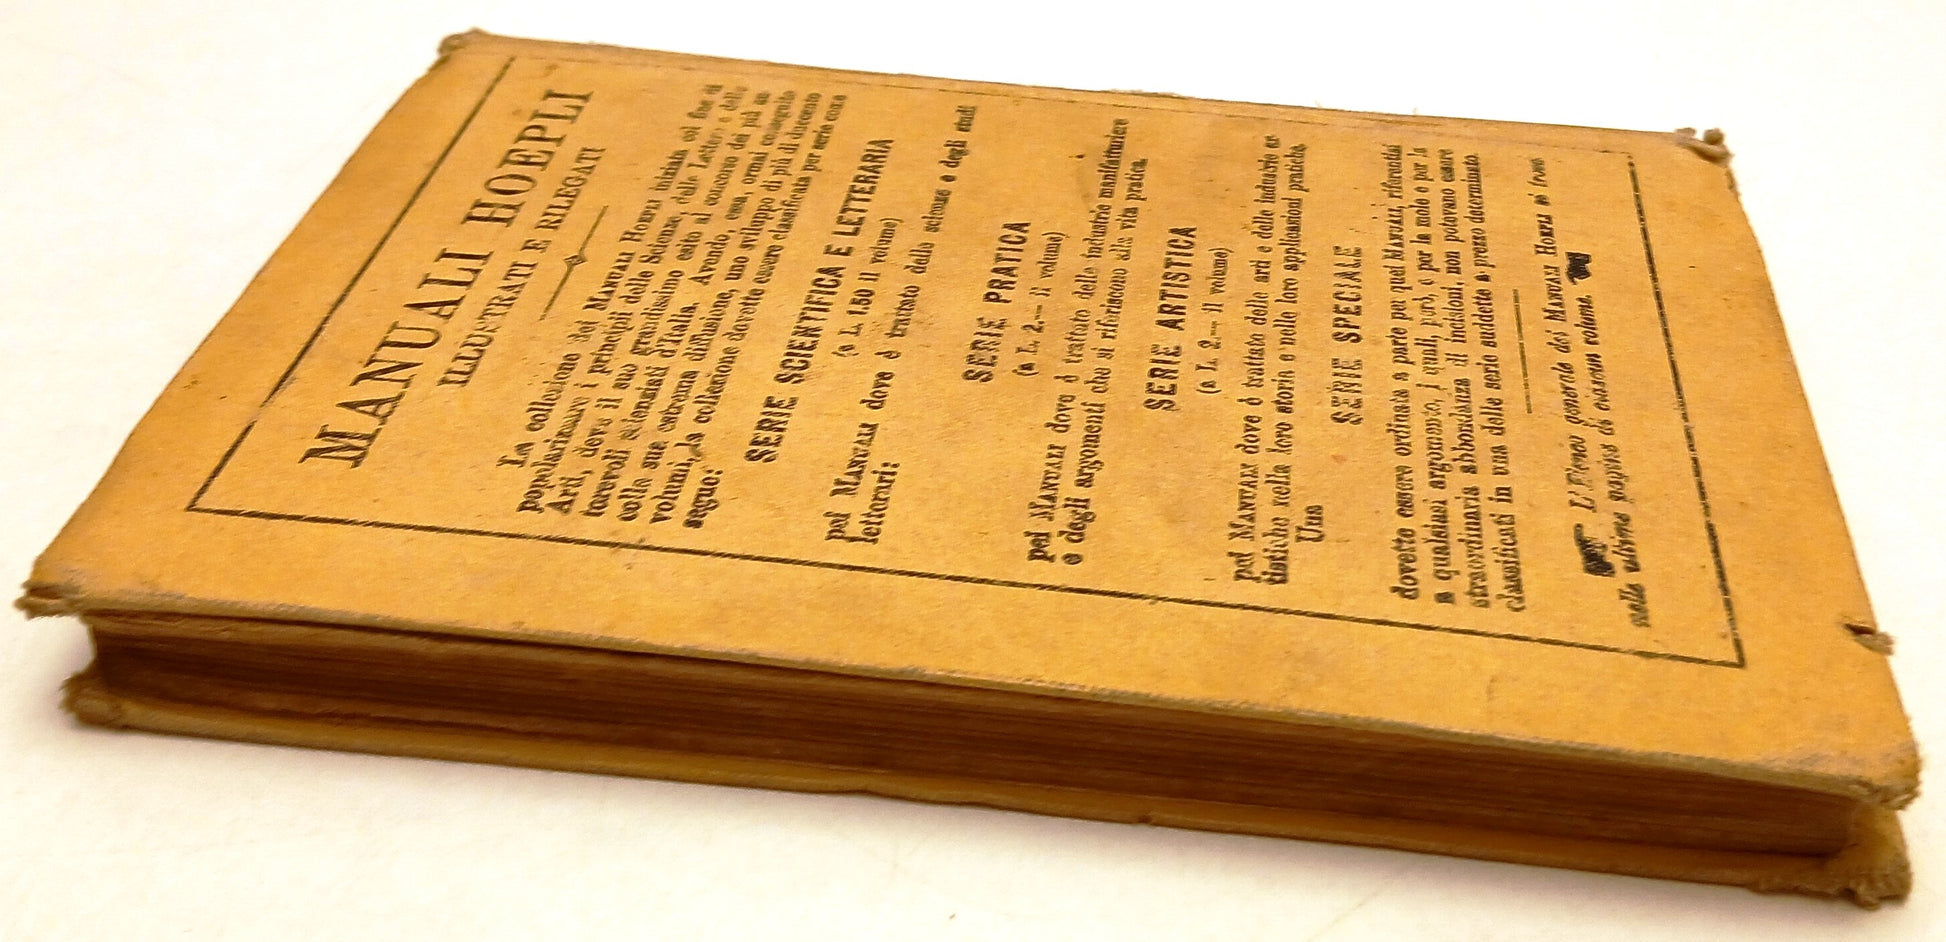 MANUALI HOEPLI
ILLUSTRATI E RILEGATI
La collezione dei MANUALI HOEPLI iniziata col fine di
popolarizzare i principii delle Scienze, delle Lettere e delle
Arti, deve il suo grandissimo esito al concorso dei più au
torevoli scienziati d'Italia. Avendo, essa, ormai conseguito
colla sua estrema diffusione, uno sviluppo di più di duecento
volumi, la collezione dovette essere classificata per serie come
segue:
SERIE SCIENTIFICA E LETTERARIA
(a L. 1.50 il volume)
pei MANUALI dove è trattato delle scienze e degli studi
letterari:
SERIE PRATICA
(a L. 2.— il volume)
pei MANUALI dove è trattato delle industrie manifatturiere
e degli argomenti che si riferiscono alla vita pratica.
SERIE ARTISTICA
(a L. 2.— il volume)
pei MANUALI dove è trattato delle arti e delle industrie ar-
tistiche nella loro storia e nelle loro applicazioni pratiche.
Una
SERIE SPECIALE
dovette essere ordinata a parte per quei MANUALI, riferentisi
a qualsiasi argomento, i quali, però, o per la mole o per la
straordinaria abbondanza di incisioni, non potevano essere
classificati in una delle serie suddette a prezzo determinato.
L'Elenco generale dei MANUALI HOEPLI si trova
nelle ultime pagine di ciascun volume.